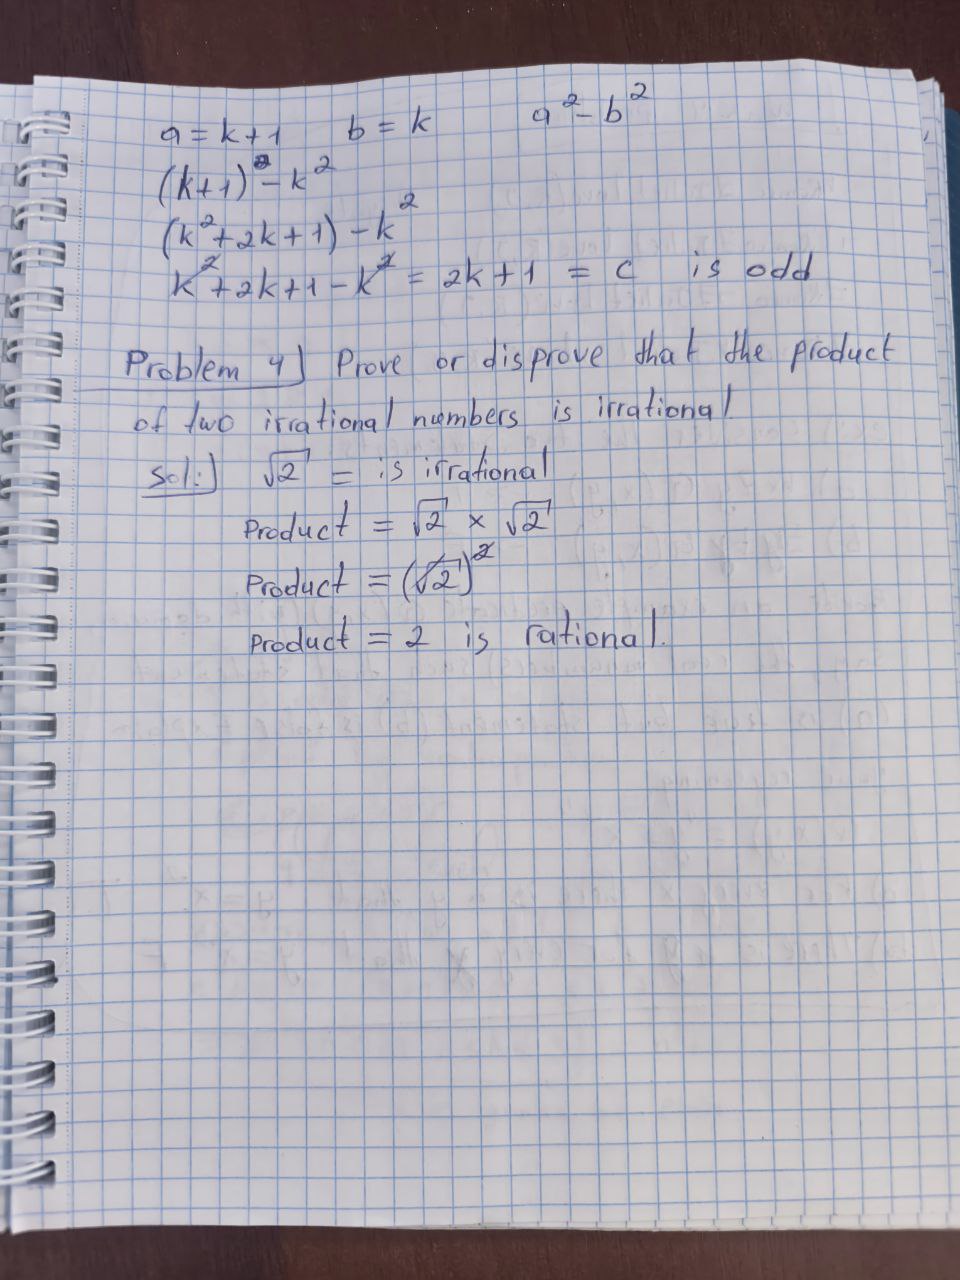 a = k+1 b = k a² - b²
(k+1)² - k²
(k² + 2k + 1) - k²
k² + 2k + 1 - k² = 2k + 1 = c is odd
Problem 4) Prove or disprove that the product
of two irrational numbers is irrational.
Sol:) √2 = is irrational
Product = √2 × √2
Product = (√2)²
Product = 2 is rational.